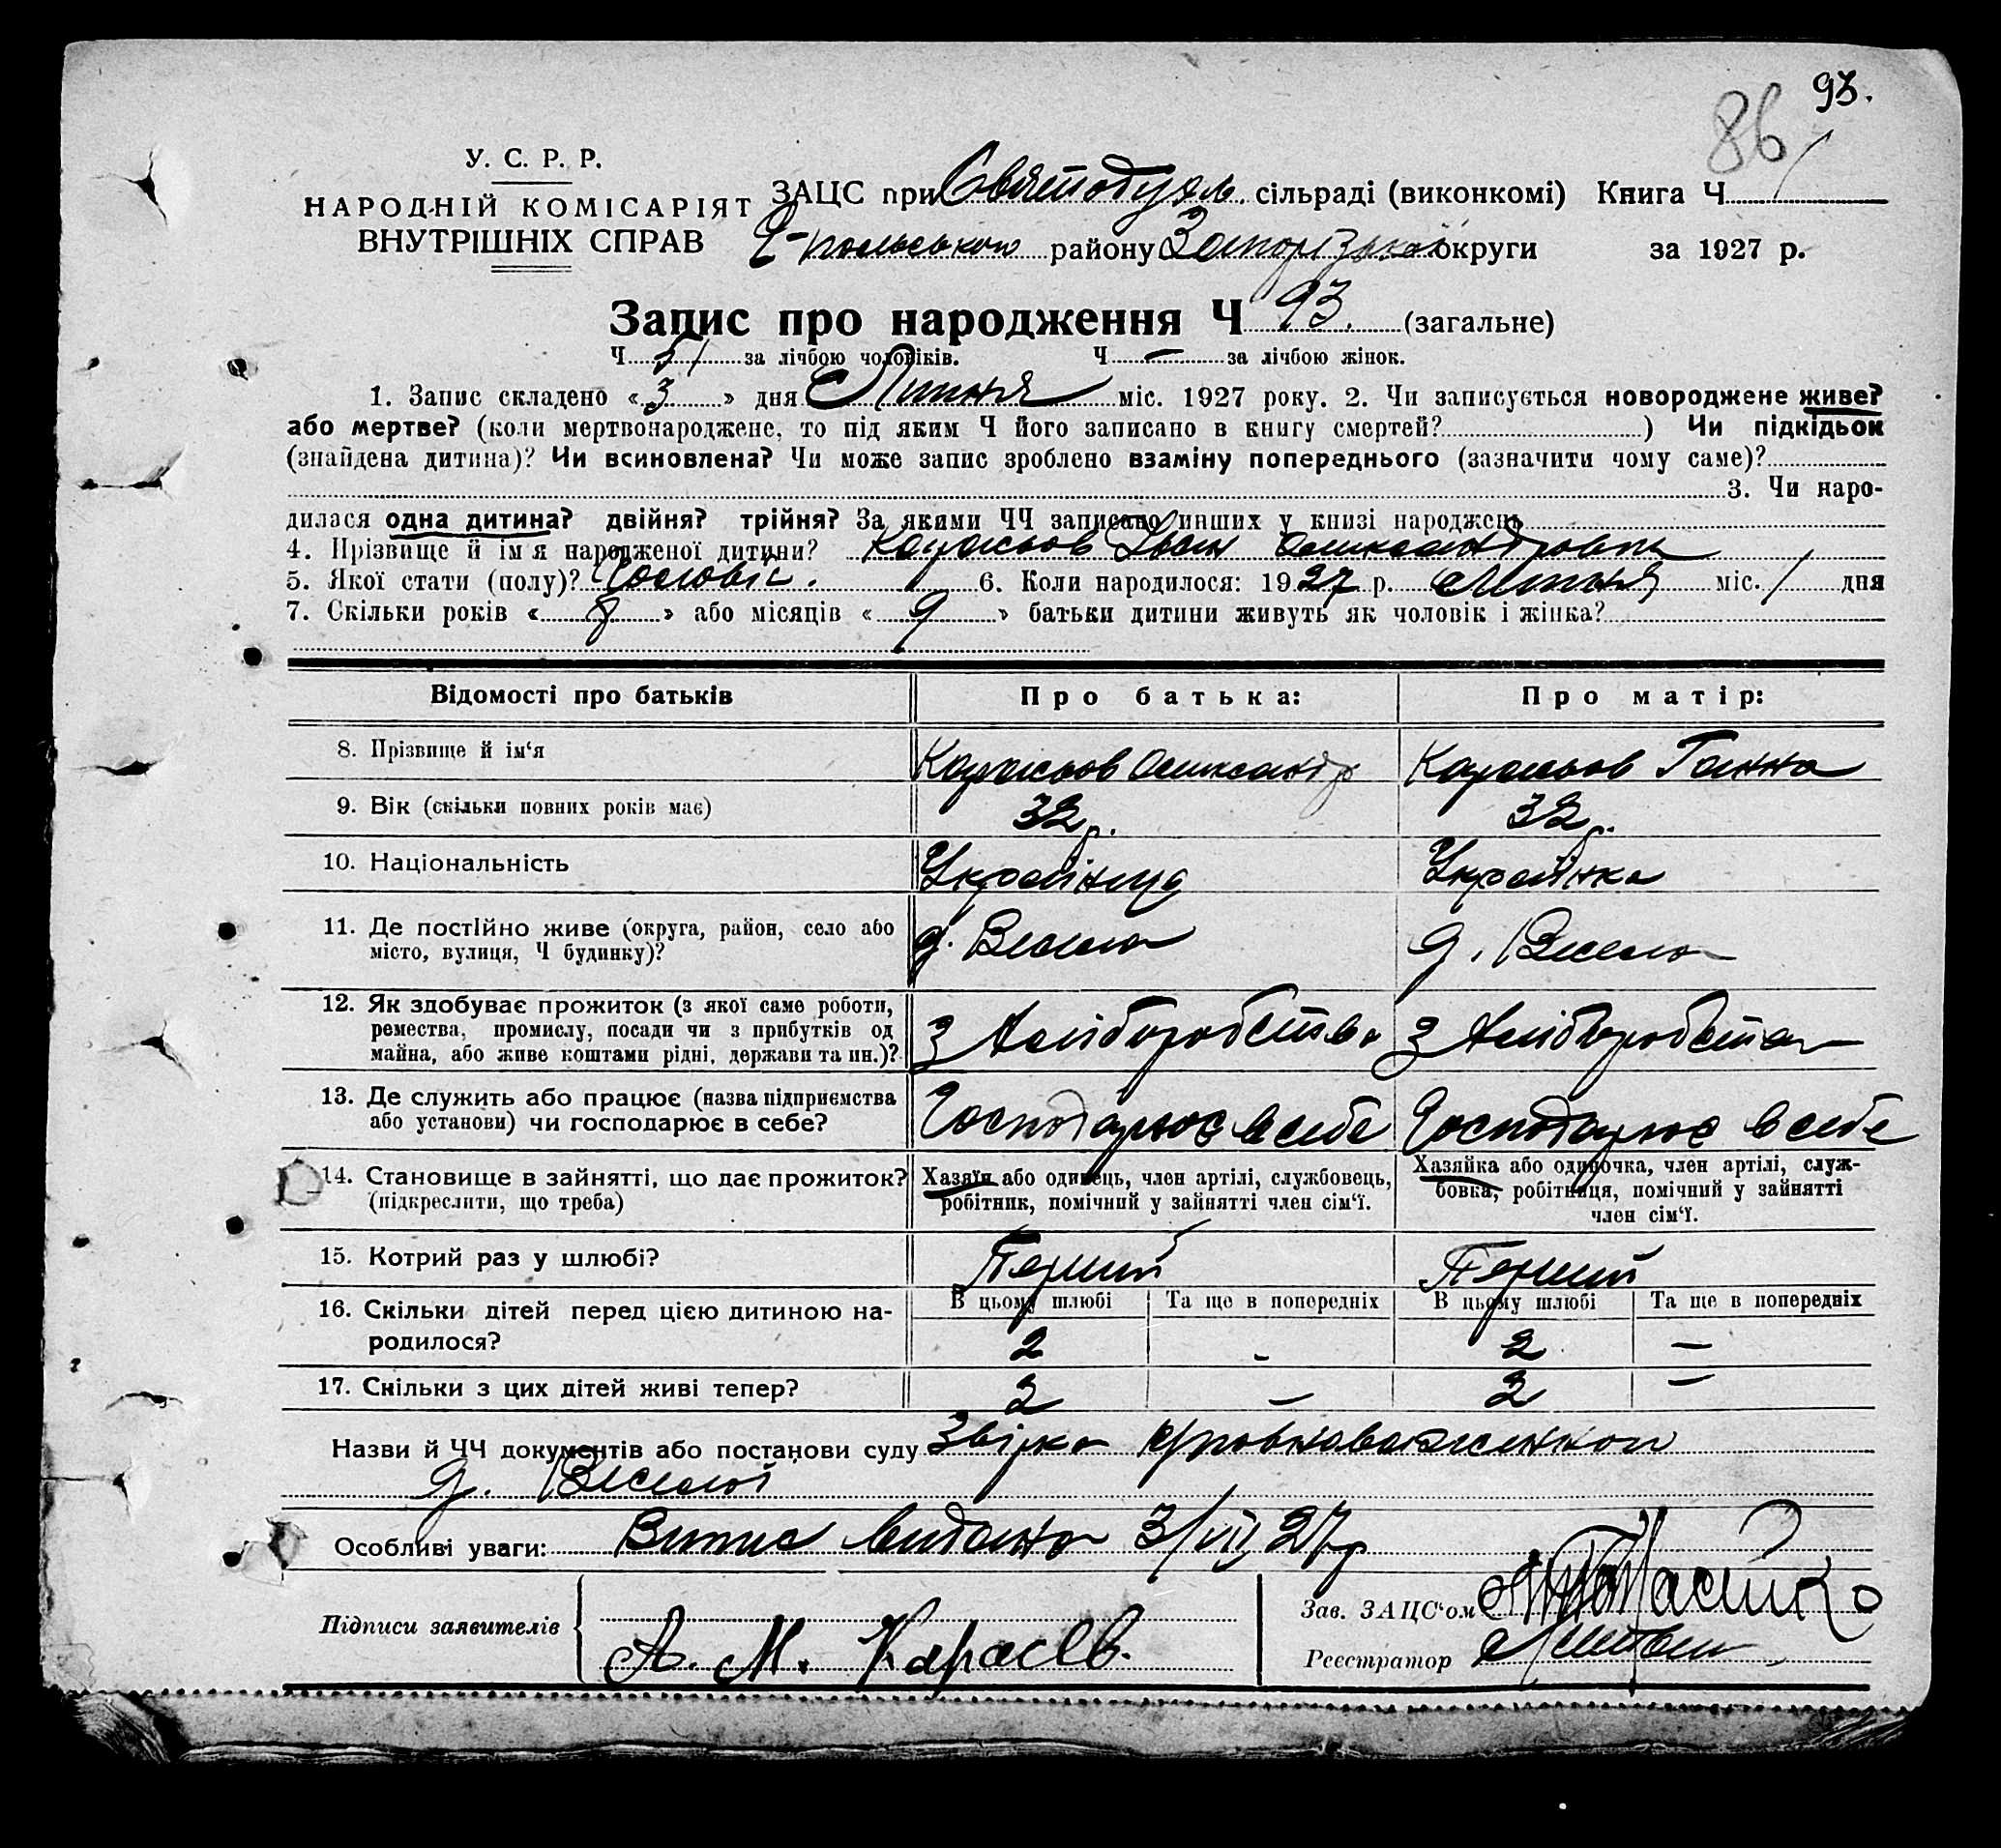 93.
86
У. С. Р. Р.
НАРОДНІЙ КОМІСАРІЯТ
ВНУТРІШНІХ СПРАВ
ЗАЦС при сільраді (виконкомі) Книга Ч 1
району Запорізької округи за 1927 р.
Запис про народження Ч 93. (загальне)
Ч 51 за лічбою чоловіків. Ч — за лічбою жінок.
1. Запис складено «3» дня Липня міс. 1927 року. 2. Чи записується новороджене живе?
або мертве? (коли мертвонароджене, то під яким Ч його записано в книгу смертей? ) Чи підкідьок
(знайдена дитина)? Чи всиновлена? Чи може запис зроблено взаміну попереднього (зазначити чому саме)?
3. Чи наро-
дилася одна дитина? двійня? трійня? За якими ЧЧ записано инших у книзі народжень
4. Прізвище й ім'я народженої дитини? Карасьов Іван
5. Якої стати (полу)? Чоловіч. 6. Коли народилося: 1927 р. Липня міс. 1 дня
7. Скільки років «8» або місяців «9» батьки дитини живуть як чоловік і жінка?
Відомості про батьків Про батька: Про матір:
8. Прізвище й ім'я Карасьов Олександр Карасьов Ганна
9. Вік (скільки повних років має) 32 р. 32 р.
10. Національність Українець Українка
11. Де постійно живе (округа, район, село або
місто, вулиця, Ч будинку)? д. Весела д. Весела
12. Як здобуває прожиток (з якої саме роботи,
ремества, промислу, посади чи з прибутків од
майна, або живе коштами рідні, держави та ин.)? З хліборобства З хліборобства
13. Де служить або працює (назва підприємства
або установи) чи господарює в себе? Господарює в себе Господарює в себе
14. Становище в зайнятті, що дає прожиток?
(підкреслити, що треба)
Хазяїн або одинець, член артілі, службовець,
робітник, помічний у зайнятті член сім'ї.
Хазяйка або одиночка, член артілі, служ-
бовка, робітниця, помічний у зайнятті
член сім'ї.
15. Котрий раз у шлюбі? Перший Перший
16. Скільки дітей перед цією дитиною на-
родилося?
В цьому шлюбі Та ще в попередніх В цьому шлюбі Та ще в попередніх
2 – 2 –
17. Скільки з цих дітей живі тепер? 2 – 2 –
Назви й ЧЧ документів або постанови суду Звірка
д. Веселої
Особливі уваги: Витис видано 3/VII 27р
Підписи заявителів А. М. Карасев.
Зав. ЗАЦС'ом
Реєстратор